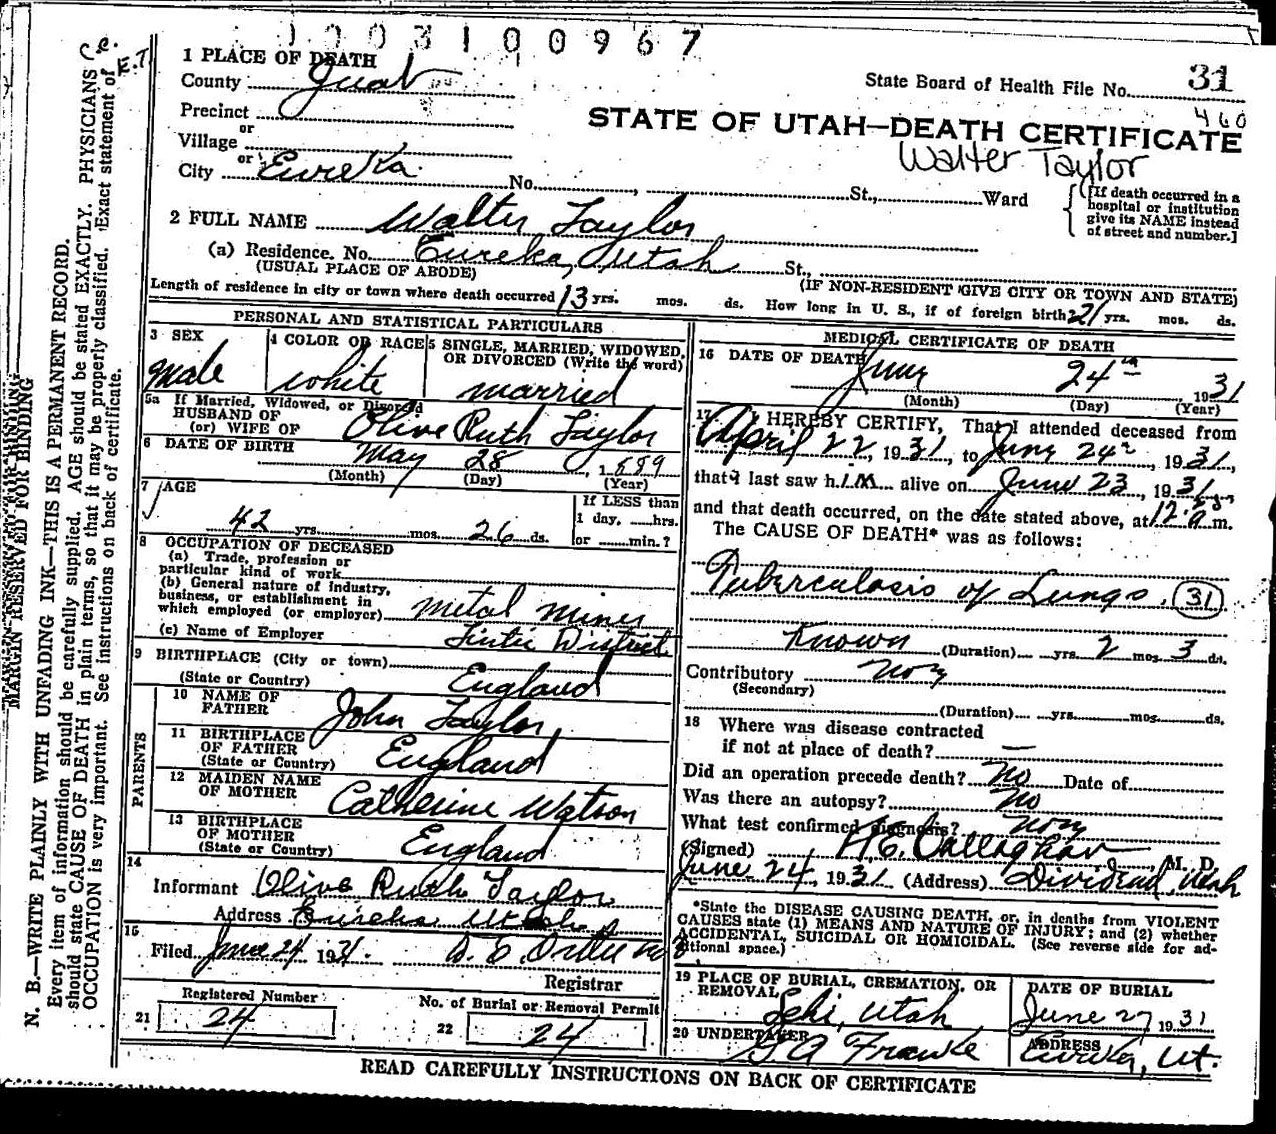 1003100967
1 PLACE OF DEATH
County Juab
State Board of Health File No. 31
460
Precinct
or
Village
or
City Eureka No. , St., Ward
STATE OF UTAH—DEATH CERTIFICATE
Walter Taylor
{[If death occurred in a
hospital or institution
give its NAME instead
of street and number.]
2 FULL NAME Walter Taylor
(a) Residence. No. Eureka, Utah St.,
(USUAL PLACE OF ABODE) (IF NON-RESIDENT GIVE CITY OR TOWN AND STATE)
Length of residence in city or town where death occurred 13 yrs. mos. ds. How long in U. S., if of foreign birth? 21 yrs. mos. ds.
PERSONAL AND STATISTICAL PARTICULARS
3 SEX
male
4 COLOR OR RACE
white
5 SINGLE, MARRIED, WIDOWED,
OR DIVORCED (Write the word)
married
5a If Married, Widowed, or Divorced
HUSBAND OF
(or) WIFE OF Olive Ruth Taylor
6 DATE OF BIRTH May 28, 1889
(Month) (Day) (Year)
7 AGE
42 yrs. mos. 26 ds.
If LESS than
1 day, hrs.
or min.?
8 OCCUPATION OF DECEASED
(a) Trade, profession or
particular kind of work
(b) General nature of industry,
business, or establishment in
which employed (or employer) metal miner
(c) Name of Employer Tintic District
9 BIRTHPLACE (City or town)
(State or Country) England
PARENTS
10 NAME OF
FATHER John Taylor
11 BIRTHPLACE
OF FATHER
(State or Country) England
12 MAIDEN NAME
OF MOTHER Catherine Watson
13 BIRTHPLACE
OF MOTHER
(State or Country) England
14
Informant Olive Ruth Taylor
Address Eureka Utah
15
Filed June 24 1931.
Registrar
Registered Number
21 24
No. of Burial or Removal Permit
22 24
MEDICAL CERTIFICATE OF DEATH
16 DATE OF DEATH June 24th, 1931
(Month) (Day) (Year)
17 I HEREBY CERTIFY, That I attended deceased from
April 22, 1931, to June 24, 1931,
that I last saw him alive on June 23, 1931,
and that death occurred, on the date stated above, at a m.
The CAUSE OF DEATH* was as follows:
Tuberculosis of Lungs. (31)
Known (Duration) yrs. 2 mos. 3 ds.
Contributory
(Secondary)
(Duration) yrs. mos. ds.
18 Where was disease contracted
if not at place of death? —
Did an operation precede death? No Date of
Was there an autopsy? No
What test confirmed diagnosis?
(Signed) H.E. Callaghan, M. D.
June 24, 1931 (Address) Dividend, Utah
*State the DISEASE CAUSING DEATH, or, in deaths from VIOLENT
CAUSES state (1) MEANS AND NATURE OF INJURY; and (2) whether
ACCIDENTAL, SUICIDAL OR HOMICIDAL. (See reverse side for ad-
ditional space.)
19 PLACE OF BURIAL, CREMATION, OR
REMOVAL
Lehi, Utah
DATE OF BURIAL
June 27 1931
20 UNDERTAKER
G A Franke
ADDRESS
Eureka, Ut.
READ CAREFULLY INSTRUCTIONS ON BACK OF CERTIFICATE
MARGIN RESERVED FOR BINDING
N. B.—WRITE PLAINLY WITH UNFADING INK—THIS IS A PERMANENT RECORD.
Every item of information should be carefully supplied. AGE should be stated EXACTLY. PHYSICIANS
should state CAUSE OF DEATH in plain terms, so that it may be properly classified. Exact statement of
OCCUPATION is very important. See instructions on back of certificate.